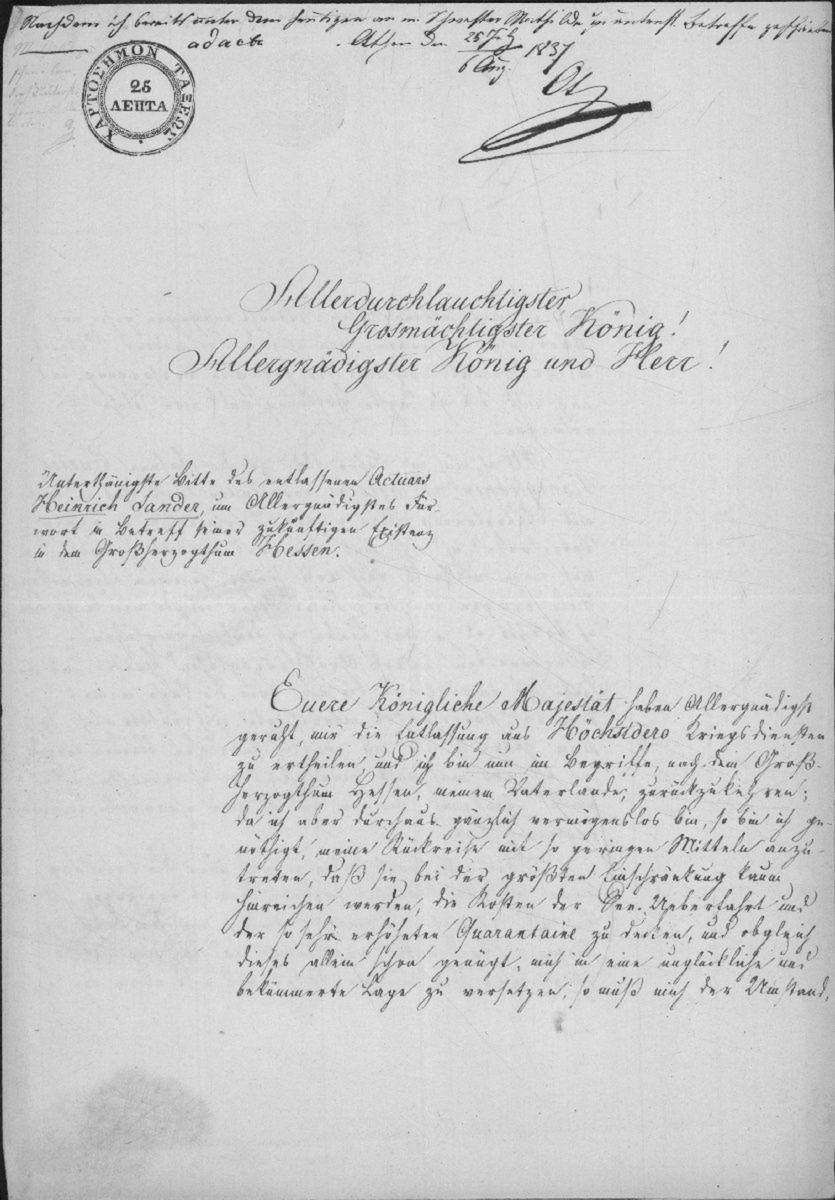 Nachdem ich bereits unter dem heutigen an m. Schwester Mathilde in untenst. Betreffe geschrieben
ad acta
Athen den 25 July / 6 Aug. 1837
ΧΑΡΤΟΣΗΜΟΝ ΤΑΞΕΩΣ
25
ΛΕΠΤΑ
Allerdurchlauchtigster
Grosmächtigster König!
Allergnädigster König und Herr!
Unterthänigste Bitte des entlassenen Actuars
Heinrich Sander, um Allergnädigstes Für-
wort in Betreff seiner zukünftigen Existenz
in dem Großherzogthum Hessen.
Euere Königliche Majestät haben Allergnädigst
geruht, mir die Entlassung aus Höchstdero Kriegsdiensten
zu ertheilen und ich bin nun im Begriffe, nach dem Groß-
herzogthum Hessen, meinem Vaterlande, zurückzukehren;
da ich aber durchaus gänzlich vermögenslos bin, so bin ich ge-
nöthigt, meine Rückreise mit so geringen Mitteln anzu-
treten, daß sie bei der größten Einschränkung kaum
hinreichen werden, die Kosten der See-Ueberfahrt und
der so sehr erhöheten Quarantaine zu decken, und obgleich
dieses allein schon genügt, mich in eine unglückliche und
bekümmerte Lage zu versetzen, so muß mich der Umstand,